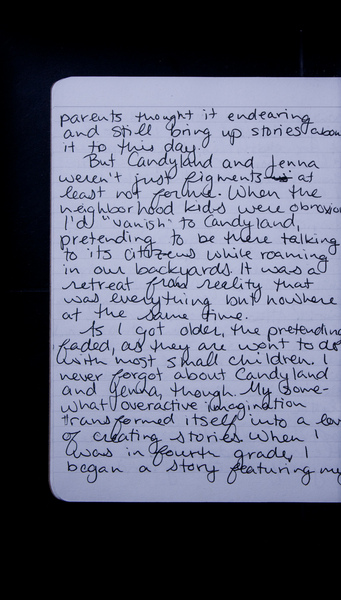 parents thought it endearing
and still bring up stories about
it to this day.
But Candyland and Jenna
weren't just figments at
least not for me. When the
neighborhood kids were obnoxious
I'd "vanish" to Candyland,
pretending to be there talking
to its citizens while roaming
in our backyards. It was a
retreat from reality that
was everything but nowhere
at the same time.
As I got older, the pretending
faded, as they are wont to do
with most small children. I
never forgot about Candyland
and Jenna, though. My some-
what overactive imagination
transformed itself into a love
of creating stories. When I
was in fourth grade, I
began a story featuring my